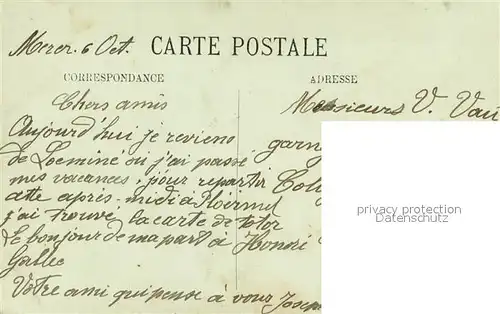 Mercr. 6 Oct. CARTE POSTALE
CORRESPONDANCE
ADRESSE
Chers amis
Messieurs V. Vau
Aujourd'hui je reviens
garn
de Locminé où j'ai passé
mes vacances, pour repartir
Coly
atte après-midi à Ploermel
j'ai trouvé la carte de totor
Le bonjour de ma part à Honoré
Gallic
Votre ami qui pense à vous Josep
privacy protection
Datenschutz